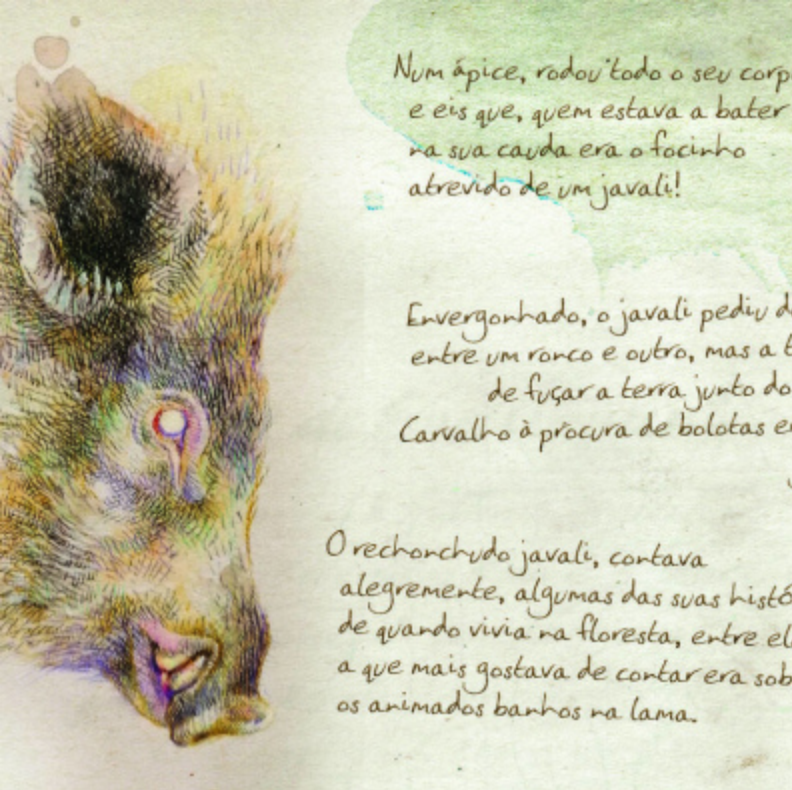 Num ápice, rodou todo o seu
e eis que, quem estava a bater
na sua cauda era o focinho
atrevido de um javali!
Envergonhado, o javali pediu
entre um ronco e outro, mas a
de fuçar a terra junto do
Carvalho à procura de bolotas
O rechonchudo javali, contava
alegremente, algumas das suas
de quando vivia na floresta, entre
a que mais gostava de contar era
os animados banhos na lama.